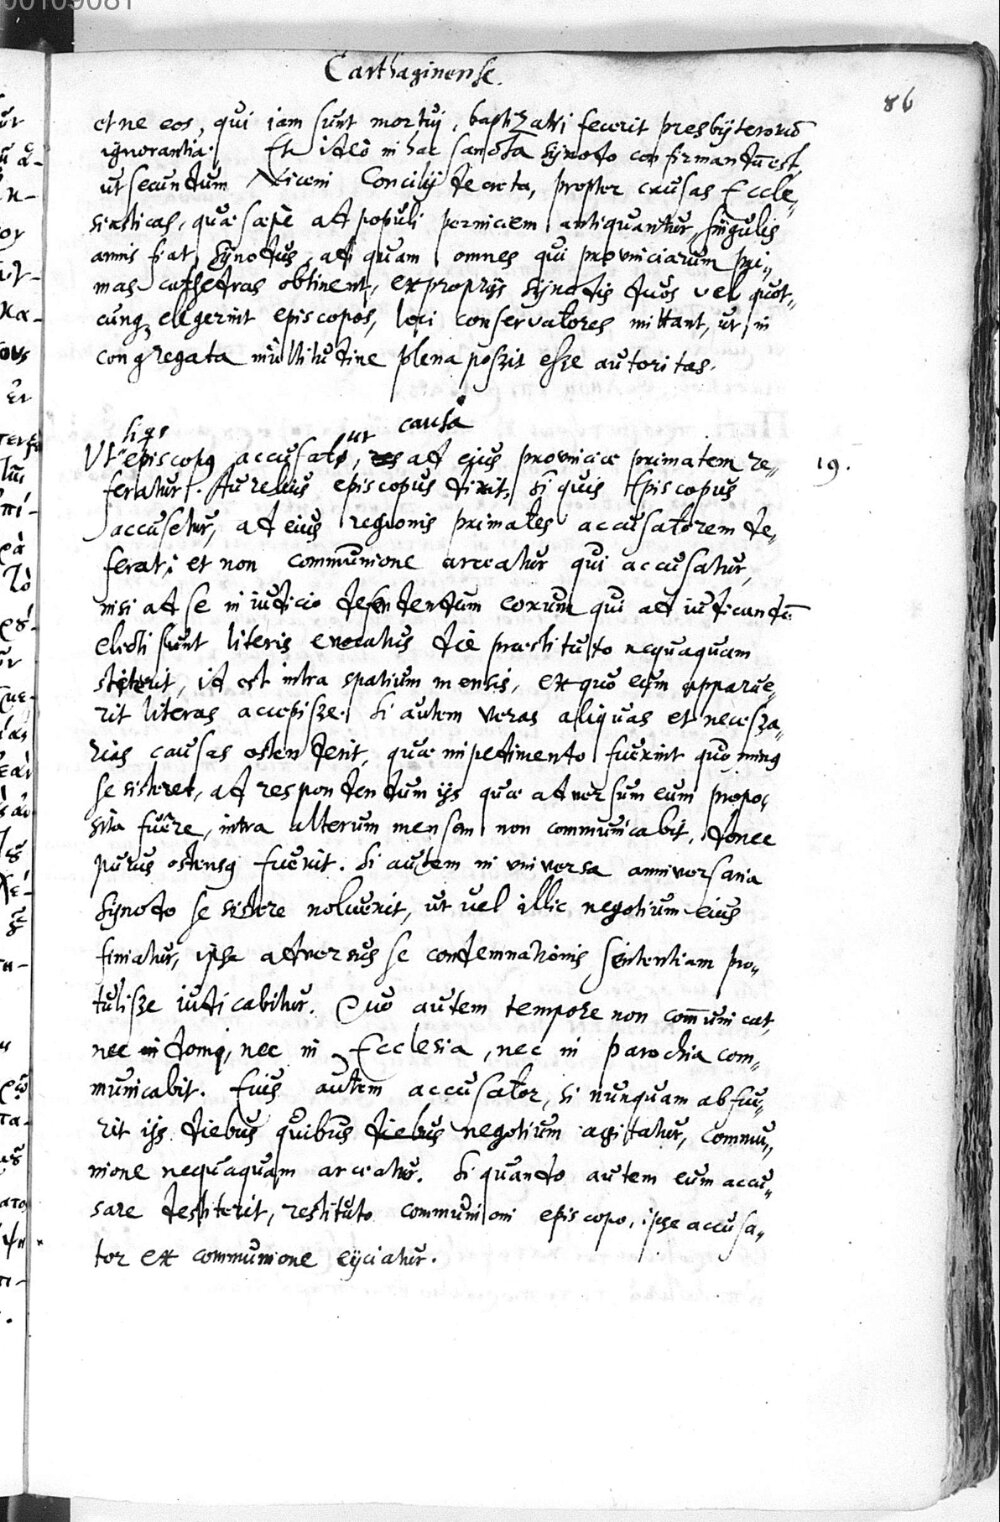 00109081
Carthaginense.
86
et ne eos, qui iam sunt mortui, baptizatri fecerit presbyterorũ
ignorantia. Et ideò in hac sancta synodo confirmandũ est,
ut secundum Niceni Concilij decreta, propter causas Eccle,,
siasticas, quæ sæpè ad populi perniciem antiquantur, singulis
annis fiat synodus, ad quam omnes qui provinciarum pri,,
mas cathedras obtinent, ex proprijs synodis duos vel quot,,
cunq, elegerint episcopos, loci conservatores mittant, ut in
congregata multitudine plena possit esse autoritas.
si qs ut causa
Ut episcopus accusato, res ad ejus provinciæ primatem re,,
19.
feratur. Aurelius episcopus dixit, Si quis Episcopus
accusetur, ad eius regionis primates accusatorem de,,
ferat; et non communione arceatur qui accusatur,
nisi ad se in iudicio defendendum eorum qui ad iudicandũ
electi sunt literis evocatus die præstituto nequaquam
stiterit, id est intra spatium mensis, ex quo eum apparue,,
rit literas accepisse. Si autem veras aliquas et necessa,,
rias causas ostenderit, quæ impedimento fuerint quo minus
se sisteret, ad respondendum ijs quæ adversum eum propo,,
sita fuêre, intra alterum mensem non communicabit, donec
purus ostensus fuerit. Si autem in universa anniversaria
synodo se sistere noluerit, ut vel illic negotium eius
finiatur, ipse adversus se condemnationis sententiam pro,,
tulisse iudicabitur. Quo autem tempore non com̃unicat,
nec in domo, nec in Ecclesia, nec in parochia com,,
municabit. Eius autem accusator, si nunquam abfue,,
rit ijs diebus quibus diebus negotium agitatur, commu,,
nione nequaquam arceatur. Si quando autem eum accu,,
sare destiterit, restituto communioni episcopo, ipse accusa,,
tor ex communione eijciatur.